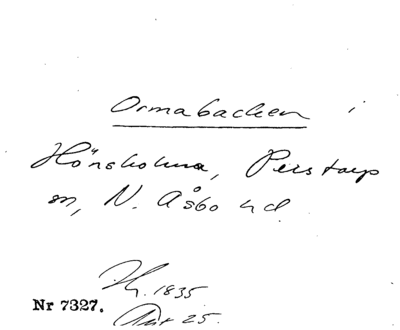 Ormabacken i
Hönsholma, Perstorp
sn, N. Åsbo hd
1835
Nr 7327.
25.